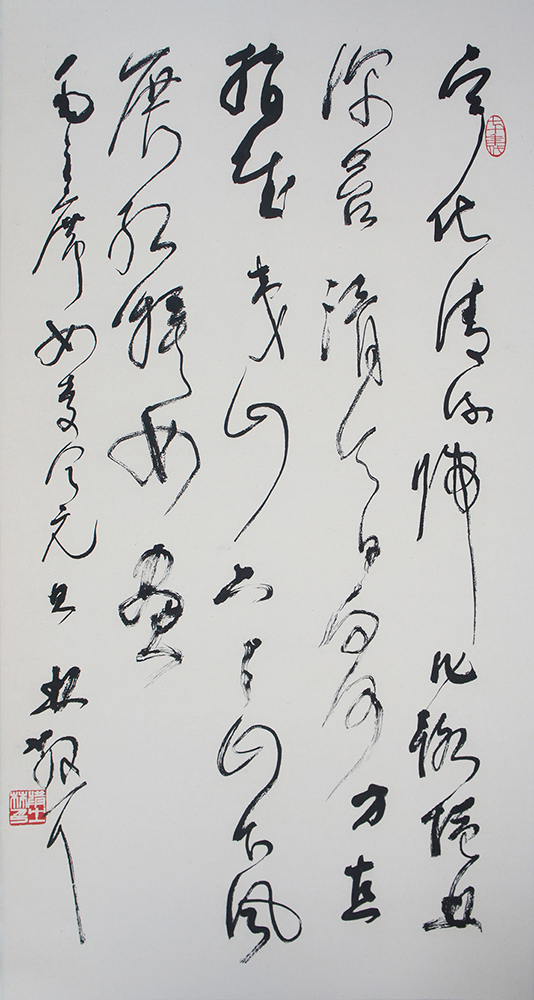 宁化清流归化路隘林
深苔滑今日向何方直
指武夷山下〻山下风
展红旗如画
毛主席如梦令元旦 林